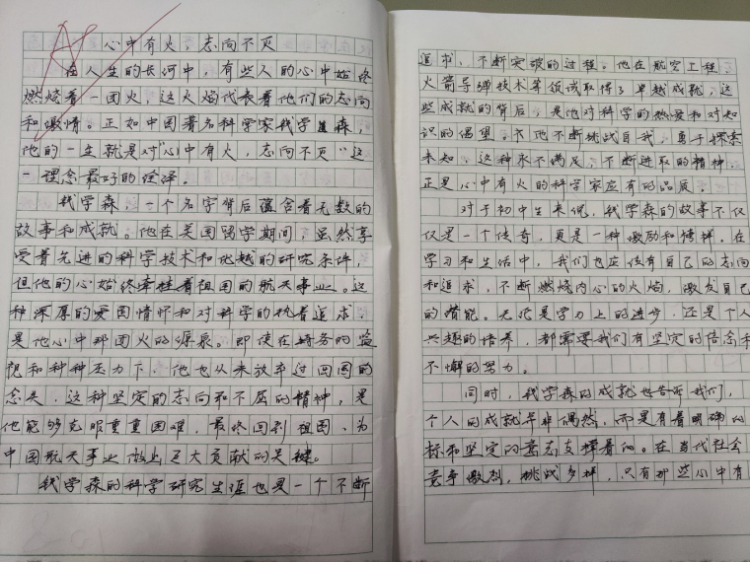 心中有火，志向不灭
在人生的长河中，有些人的心中始终
燃烧着一团火，这火焰代表着他们的志向
和激情。正如中国著名科学家钱学森，
他的一生就是对"心中有火，志向不灭"这
一理念最好的诠释。
钱学森，一个名字背后蕴含着无数的
故事和成就。他在美国留学期间，虽然享
受着先进的科学技术和优越的研究条件，
但他的心始终牵挂着祖国的航天事业。这
种深厚的爱国情怀和对科学的执着追求，
是他心中那团火的源泉。即使在特务的监
视和种种压力下，他也从未放弃过回国的
念头，这种坚定的志向和不屈的精神，是
他能够克服重重困难，最终回到祖国，为
中国航天事业做出巨大贡献的关键。
钱学森的科学研究生涯也是一个不断
追求，不断突破的过程。他在航空工程、
火箭导弹技术等领域取得了卓越成就，这
些成就的背后，是他对科学的热爱和对知
识的渴望。他不断挑战自我，勇于探索
未知，这种永不满足、不断进取的精神，
正是心中有火的科学家应有的品质。
对于初中生来说，钱学森的故事不仅
仅是一个传奇，更是一种激励和榜样。在
学习和生活中，我们也应该有自己的志向
和追求，不断燃烧内心的火焰，激发自己
的潜能。无论是学力上的进步，还是个人
兴趣的培养，都需要我们有坚定的信念和
不懈的努力。
同时，钱学森的成就也告诉我们，
个人的成就并非偶然，而是有着明确的
标和坚定的意志支撑着他。在当代社会
竞争激烈，挑战多样，只有那些心中有